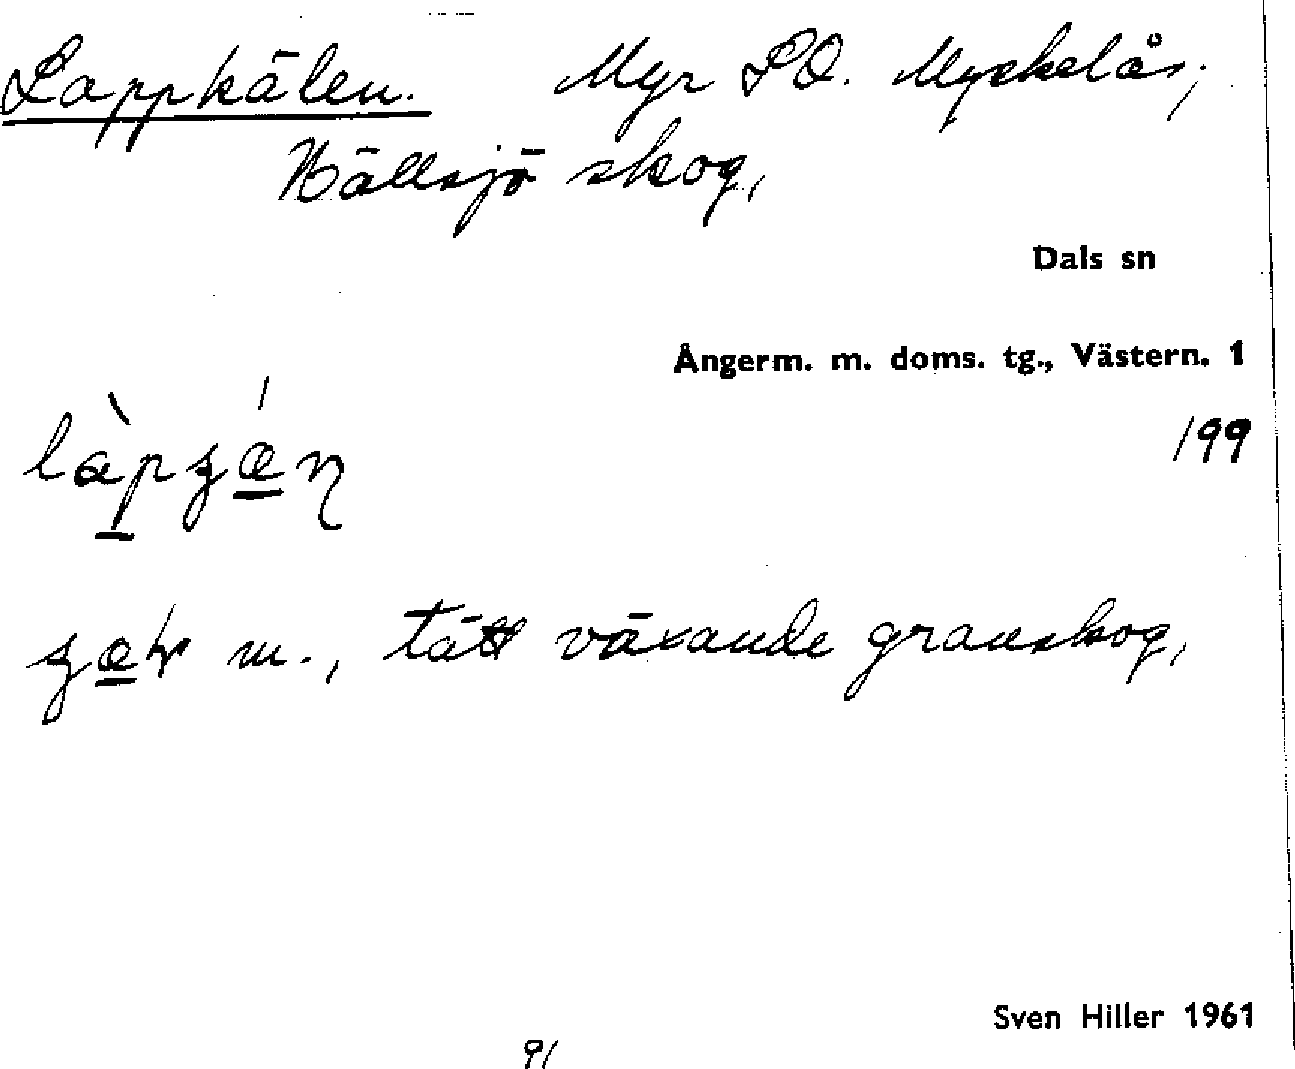 Lappkälen. Myr SO. Myckelås,
Hällsjö skog,
Dals sn
Ångerm. m. doms. tg., Västern. 1
199
m., tätt växande granskog,
Sven Hiller 1961
91